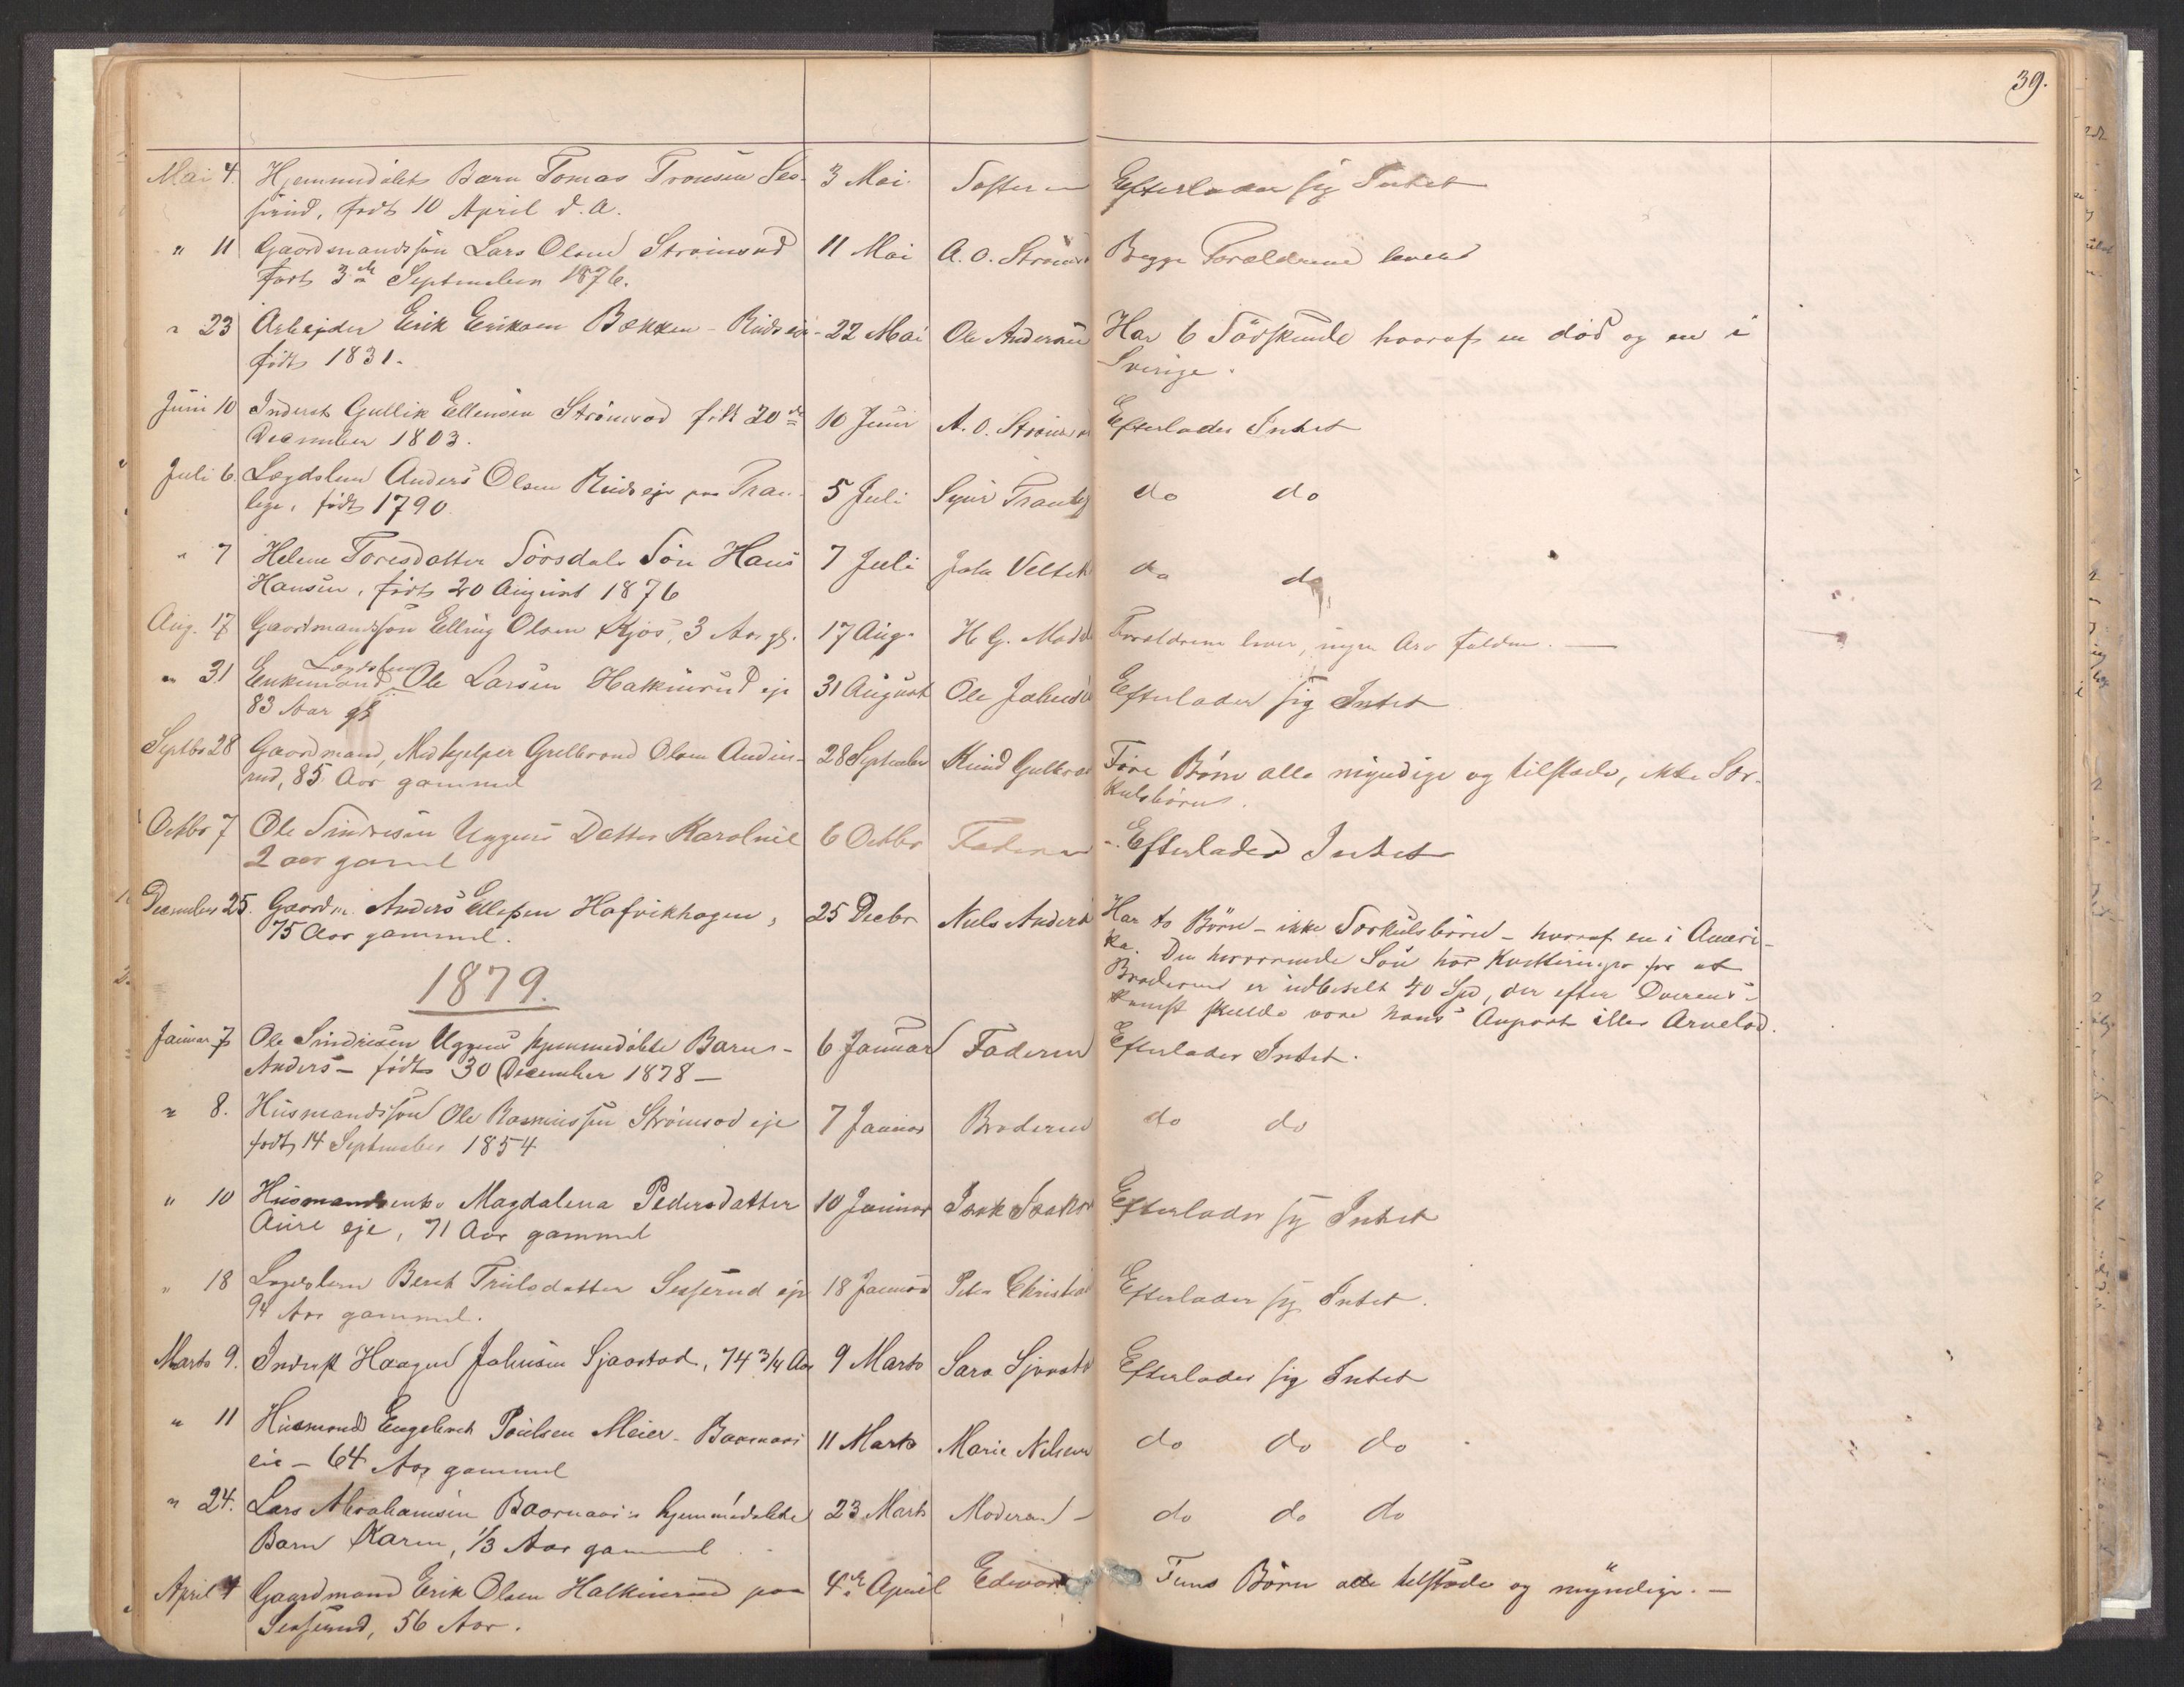 39.
Mai 4. Hjemmedøbte Barn Tomas Tronsen Ses- 3 Mai Efterlader sig Intet
serud, født 10 April d. A.
" 11 Gaardmandssøn Lars Olsen Strømsod 11 Mai A. O. Strømsod Begge Forældrene lever
født 3de September 1876.
" 23 Arbejder Erik Eriksen Bakken - Rudseje - 22 Mai Ole Andersen Har 6 Södskende hvoraf en död og en i
født 1831. Sverige.
Juni 10 Inderst Gullik Ellensen Strömsod født 20de 10 Juni A. O. Strömsod Efterlader Intet
December 1803.
Juli 6. Lægdslem Anders Olsen Rudseje paa Tran- 5 Juli do do
lege, född 1790.
" 7 Helene Toresdatter Sørsdals Søn Hans 7 Juli do do
Hansen, født 20 August 1876
Aug. 17 Gaardmandssøn Elling Olsen Kjos, 3 Aar gl. 17 Aug. H. G. Forældrene lever, ingen Arv falden. —
" 31 Enkemand Lægdslem Ole Larsen Halkinrud eje 31 August Ole Johnsen Efterlader sig Intet
83 Aar gl
Septbr 28 Gaardmand, Medhjelper Gulbrand Olsen Auden- 28 September Knud Gulbran Fire Börn alle myndige og tilstæde, ikke Sær-
rud, 85 Aar gammel kulsbörn.
Octbr 7 Ole Sindresen Uggens Datter Karoline 6 Octbr Faderen Efterlader Intet
2 aar gamel
December 25. Gaardm. Anders Ellefsen Hafvikhagen, 25 Decbr Niels Anders Har to Börn - ikke Særkulsbörn - hvoraf en i Ameri-
75 Aar gammel. ka. Den herværende Søn har Kvitteringer for at
1879. Broderen er udbetalt 40 Spd, der efter Overens-
komst skulde være hans Anpart eller Arvelod.
Januar 7 Ole Sindresen Uggens hjemmedøbte Barn - 6 Januar Faderen Efterlader Intet.
Anders - født 30 December 1878 —
" 8. Husmandssøn Ole Rasmussen Strømsod eje 7 Januar Broderen do do
født 14 September 1854
" 10 Husmandsenke Magdalena Pedersdatter 10 Januar Isak Isaks Efterlader sig Intet
Aure eje, 71 Aar gammel
" 18 Lægdslem Berit Trulsdatter Sesserud eje 18 Januar Peter Christia Efterlader sig Intet.
94 Aar gammel.
Marts 9. Inderst Haagen Johnsen Sjaastad, 74 3/4 Aar 9 Marts Sara Sjaasta Efterlader sig Intet
" 11 Husmand Engebret Poulsen Meier - Baarnaas 11 Marts Marie Nilsen do do do
eie - 64 Aar gammel
" 24. Lars Abrahamsen Baarnaas's hjemmedøbte 23 Marts Moderen - do do do
Barn Karen, 1/3 Aar gammel
April 4 Gaardmand Erik Olsen Halkinrud paa 4de April Edvard Fem Börn alle tilstæde og myndige. —
Sesserud, 56 Aar.